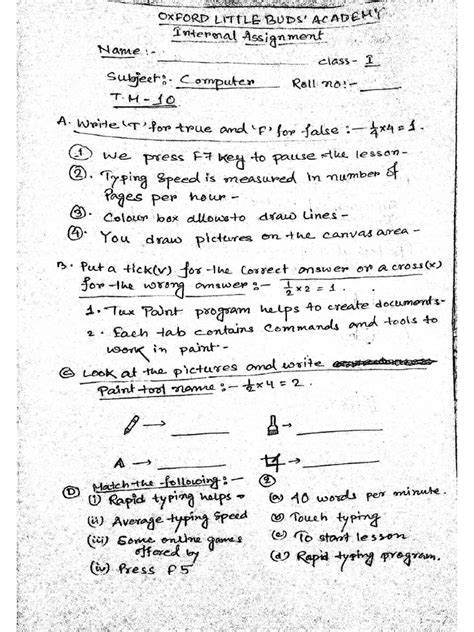 OXFORD LITTLE BUDS' ACADEMY
Internal Assignment
Name:-
class- I
Subject:- Computer Roll no:-
T.M-10
A. Write 'T' for true and 'F' for false :- ¼x4=1.
① We press F7 key to pause the lesson-
②. Typing Speed is measured in number of
Pages per hour -
③. Colour box allows to draw lines -
④. You draw pictures on the canvas area -
B. Put a tick(v) for the correct answer or a cross(x)
for the wrong answer :- ½x2=1.
1. Tux Paint program helps to create documents-
2. Each tab contains commands and tools to
work in paint -
C Look at the pictures and write
Paint tool name :- ½x4=2.
A
D Match the following :-
(i) Rapid typing helps (a) 40 words per minute.
(ii) Average typing speed (b) Touch typing
(iii) Some online games (c) To start lesson
offered by (d) Rapid typing program.
(iv) Press F5